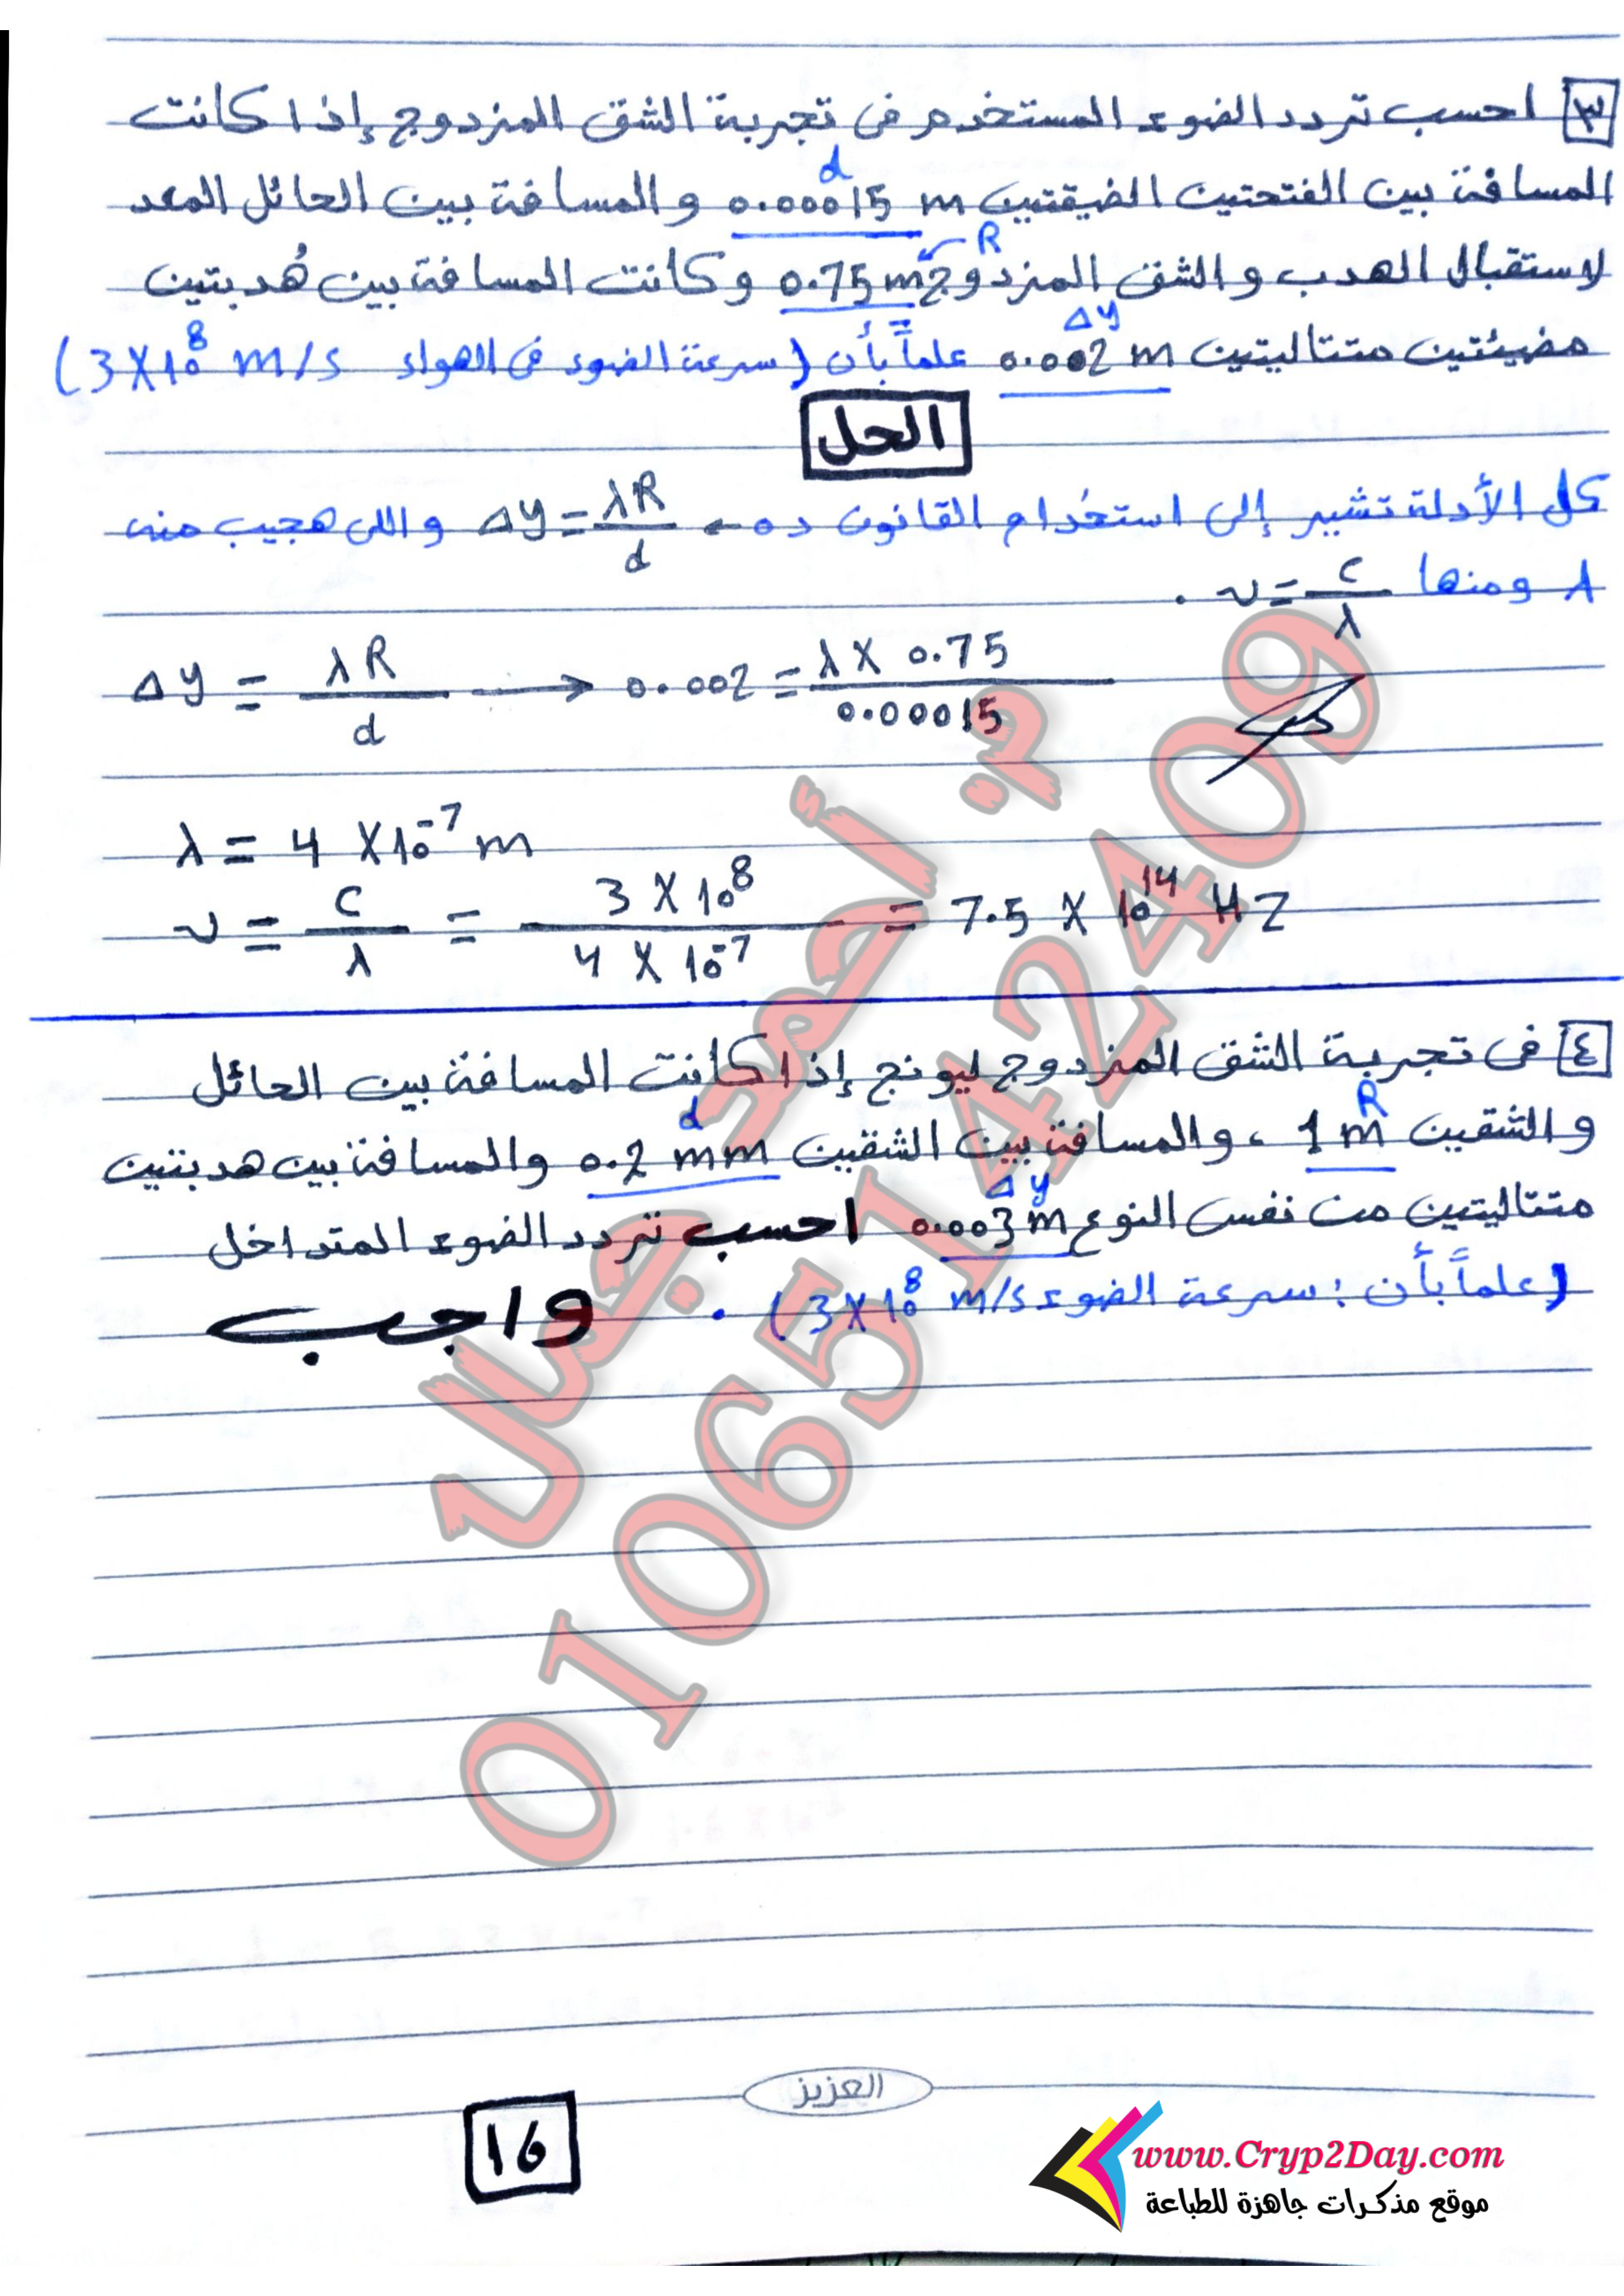 ٣ احسب تردد الضوء المستخدم فى تجربة الشق المزدوج إذا كانت
d
المسافة بين الفتحتين الضيقتين 0.00015 m والمسافة بين الحائل المعد
R
لاستقبال الهدب والشق المزدوج 0.75 m وكانت المسافة بين هُدبتين
Δy
مضيئتين متتاليتين 0.002 m علماً بأن (سرعة الضوء فى الهواء 3X10^8 m/s)
الحل
كل الأدلة تشير إلى استخدام القانون ده ← Δy = λR/d واللى هجيب منه
λ ومنها ν = c/λ .
Δy = λR/d → 0.002 = λ X 0.75/0.00015
λ = 4 X10^-7 m
ν = c/λ = 3 X 10^8/4 X 10^-7 = 7.5 X 10^14 HZ
٤ فى تجربة الشق المزدوج ليونج إذا كانت المسافة بين الحائل
R
والشقين 1 m ، والمسافة بين الشقين 0.2 mm والمسافة بين هدبتين
d
Δy
متتاليتين من نفس النوع 0.003 m احسب تردد الضوء المتداخل
(علماً بأن : سرعة الضوء 3X10^8 m/s) .
واجب
م. أحمد جمال
01065142409
العزيز
16
www.Cryp2Day.com
موقع مذكرات جاهزة للطباعة